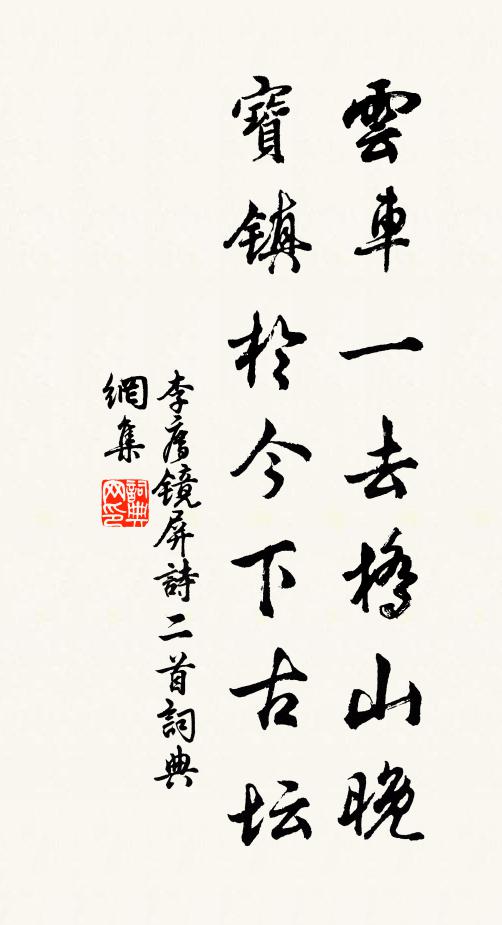 雲車一去橋山晚
寶鎮於今下古坛
李廌鏡屏詩二首詞典
網集
詞典網印